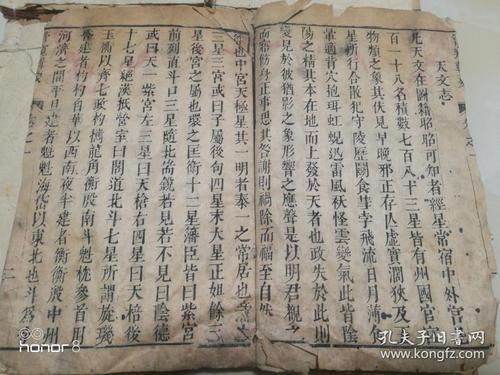 天文志
凡天文在圖籍昭昭可知者經星常宿中外官
百一十八名積數七百八十三星皆有州國官宮
物類之象其伏見早晚邪正存亡虛實濶狹及
星所行合散犯守陵歷鬭食彗孛飛流日月薄食
暈適背穴抱珥虹蜺迅雷風祅怪雲變氣此皆陰
陽之精其本在地而上發於天者也政失於此則
變見於彼猶影之象形響之應聲是以明君覩之
而寤飭身正事思其咎謝則禍除而福至自然
符也中宮天極星其一明者泰一之常居也旁
三星三宮或曰子屬後句四星末大星正如餘三
星後宮之屬也環之匡衛十二星藩臣皆曰紫宮
前列直斗口三星隨北耑銳若見若不見曰陰德
或曰天一紫宮左三星曰天槍右四星曰天棓後
十七星絕漢抵營室曰閣道北斗七星所謂旋璣
玉衡以齊七政杓攜龍角衡殷南斗魁枕參首用
昏建者杓杓自華以西南夜半建者衡衡殷中州
河濟之間平旦建者魁魁海岱以東北也斗爲
honor 8
孔夫子旧书网
www.kongfz.com